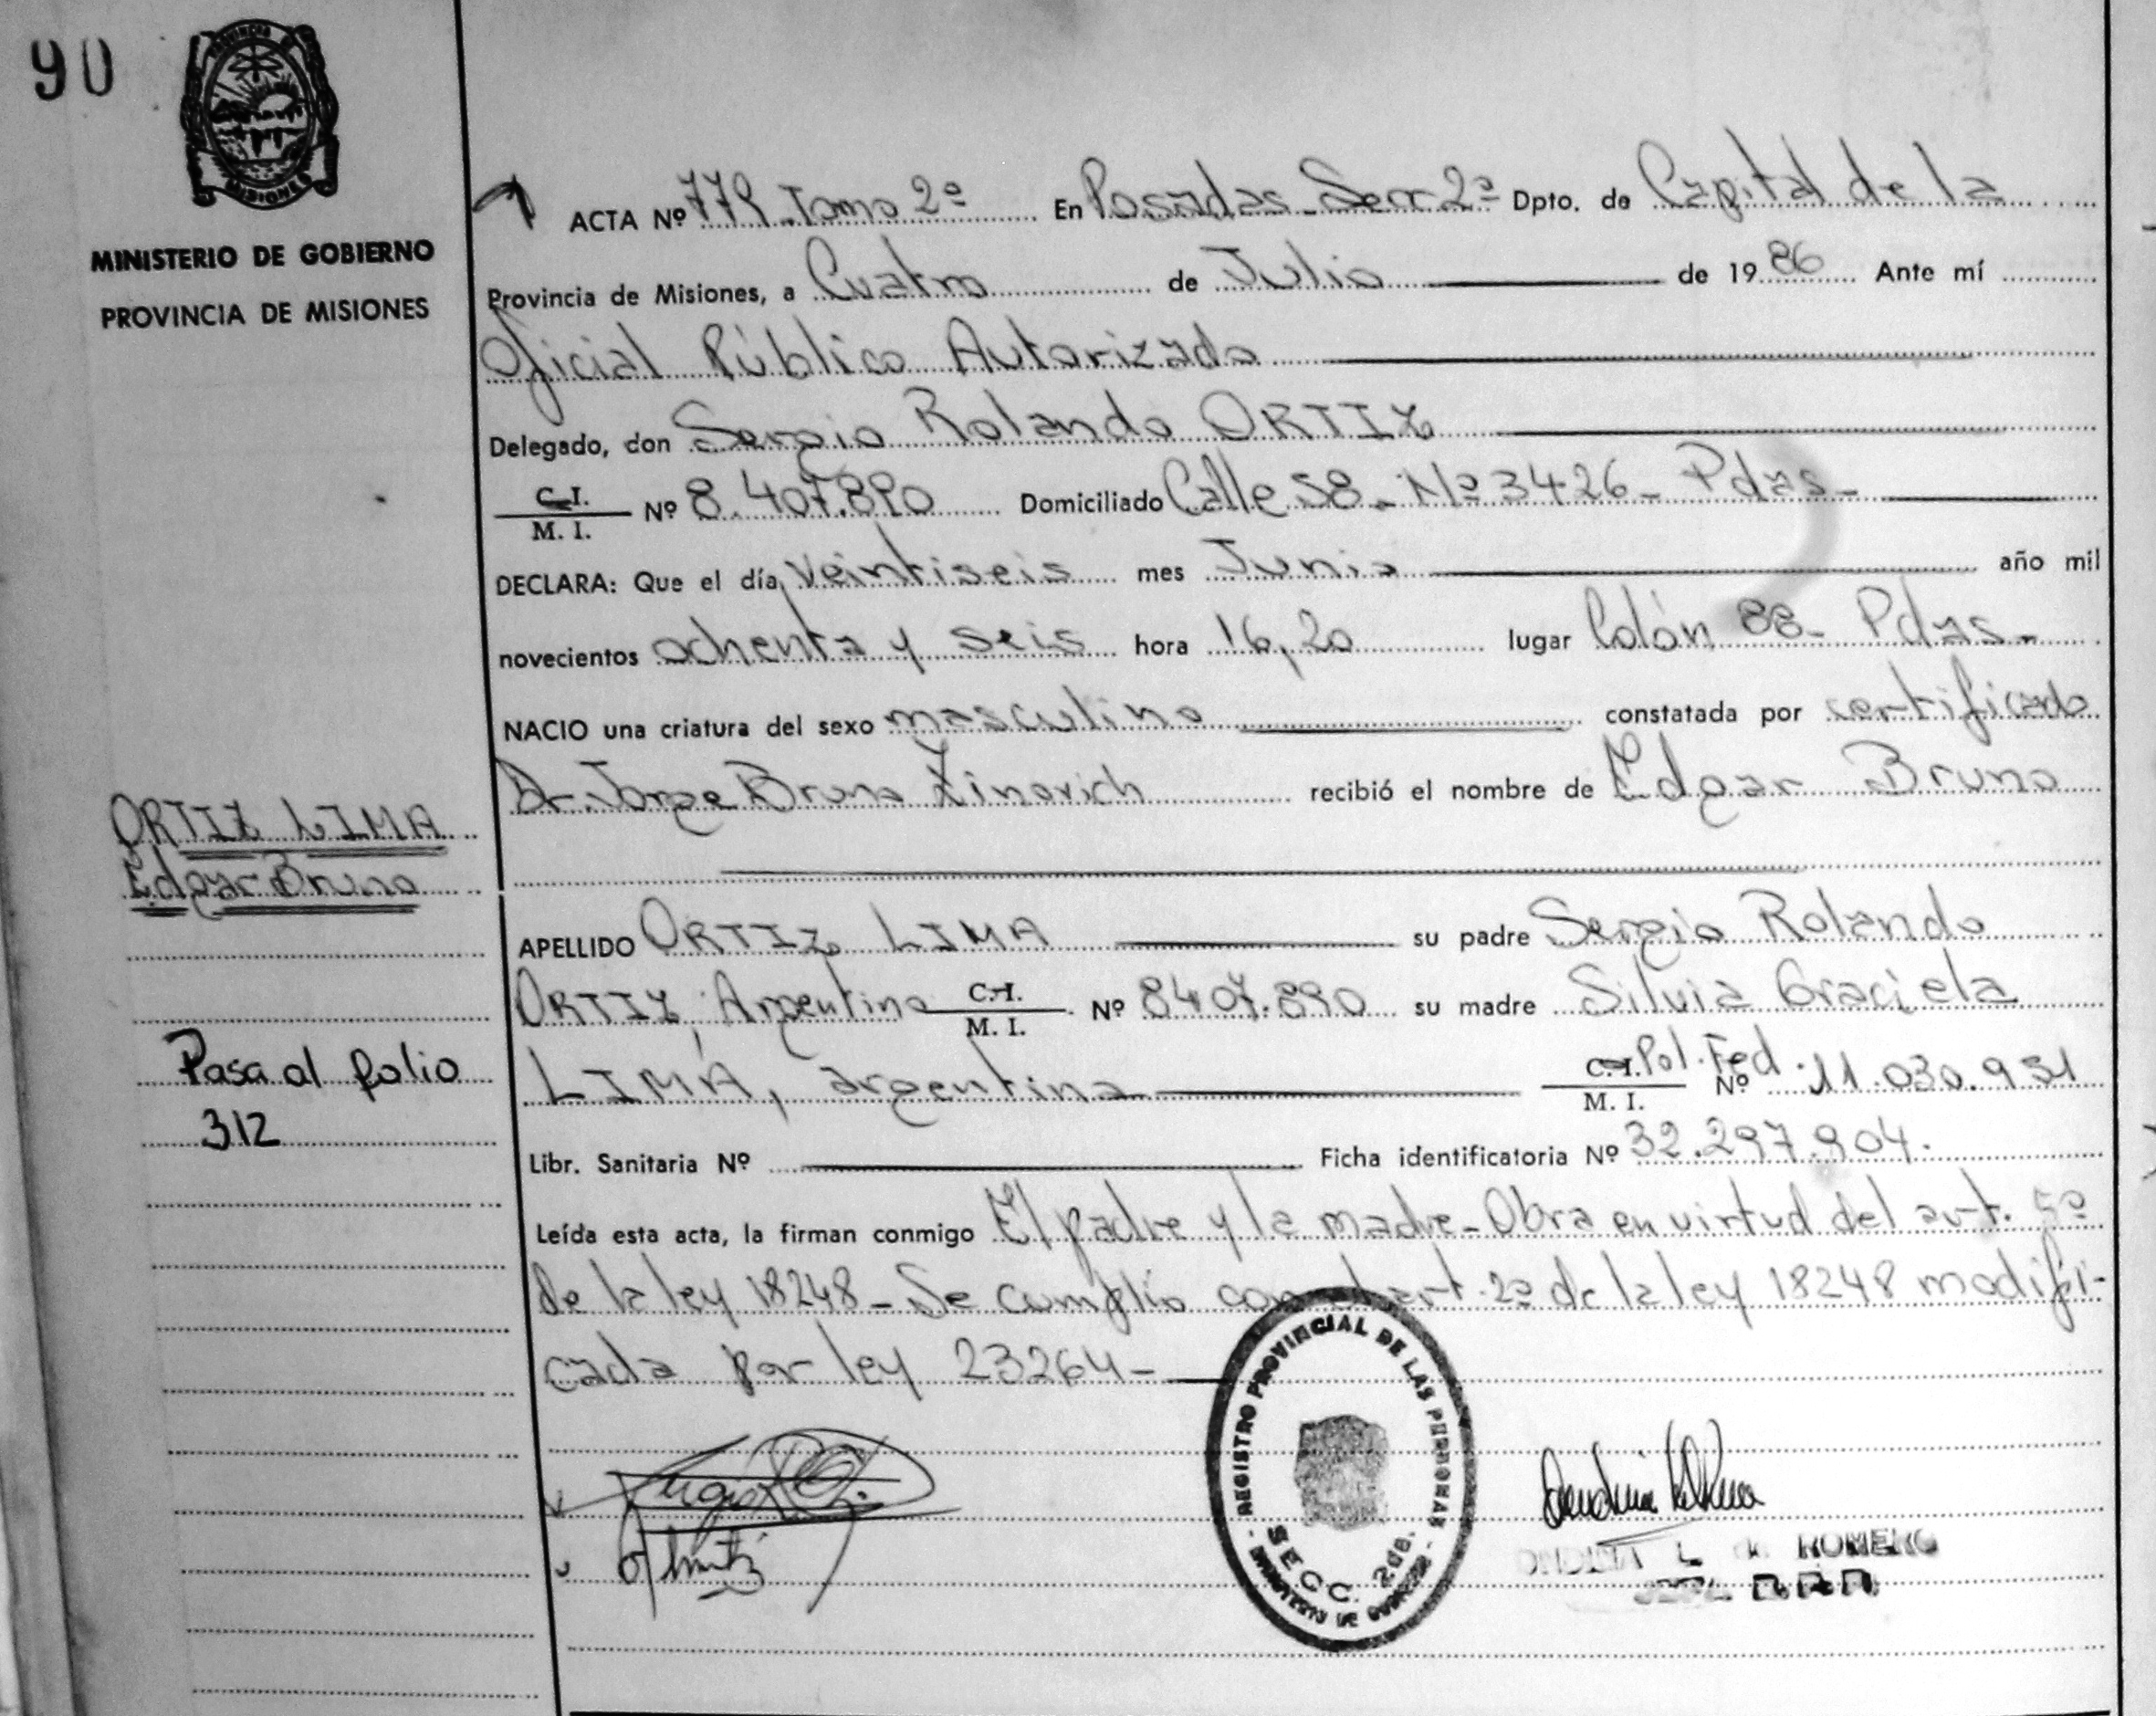 90
MISIONES
MINISTERIO DE GOBIERNO
PROVINCIA DE MISIONES
ORTIZ LIMA
Edgar Bruno
Pasa al folio
312
ACTA Nº 779 Tomo 2º En Posadas - Secc 2ª Dpto. de Capital de la
Provincia de Misiones, a Cuatro de Julio de 19 86 Ante mí
Oficial Público Autorizado
Delegado, don Sergio Rolando ORTIZ
C.I. M. I. Nº 8.407.890 Domiciliado Calle 58 - Nº 3426 - Pdas -
DECLARA: Que el día veintiseis mes Junio año mil
novecientos ochenta y seis hora 16,20 lugar Colón 88 - Pdas -
NACIO una criatura del sexo masculino constatada por certificado
Dr. Jorge Bruno Zinovich recibió el nombre de Edgar Bruno
APELLIDO ORTIZ LIMA su padre Sergio Rolando
ORTIZ, Argentino C.I. M. I. Nº 8407.890 su madre Silvia Graciela
LIMA, argentina C.I. M. I. Pol. Fed. Nº 11.030.951
Libr. Sanitaria Nº Ficha identificatoria Nº 32.297.904.
Leída esta acta, la firman conmigo El padre y la madre - Obra en virtud del art. 5º
de la ley 18248 - Se cumplío con el art. 2º de la ley 18248 modifi-
cada por ley 23264 -
REGISTRO PROVINCIAL DE LAS PERSONAS
SECC. 2da.
MINISTERIO DE GOBIERNO
ROMERO